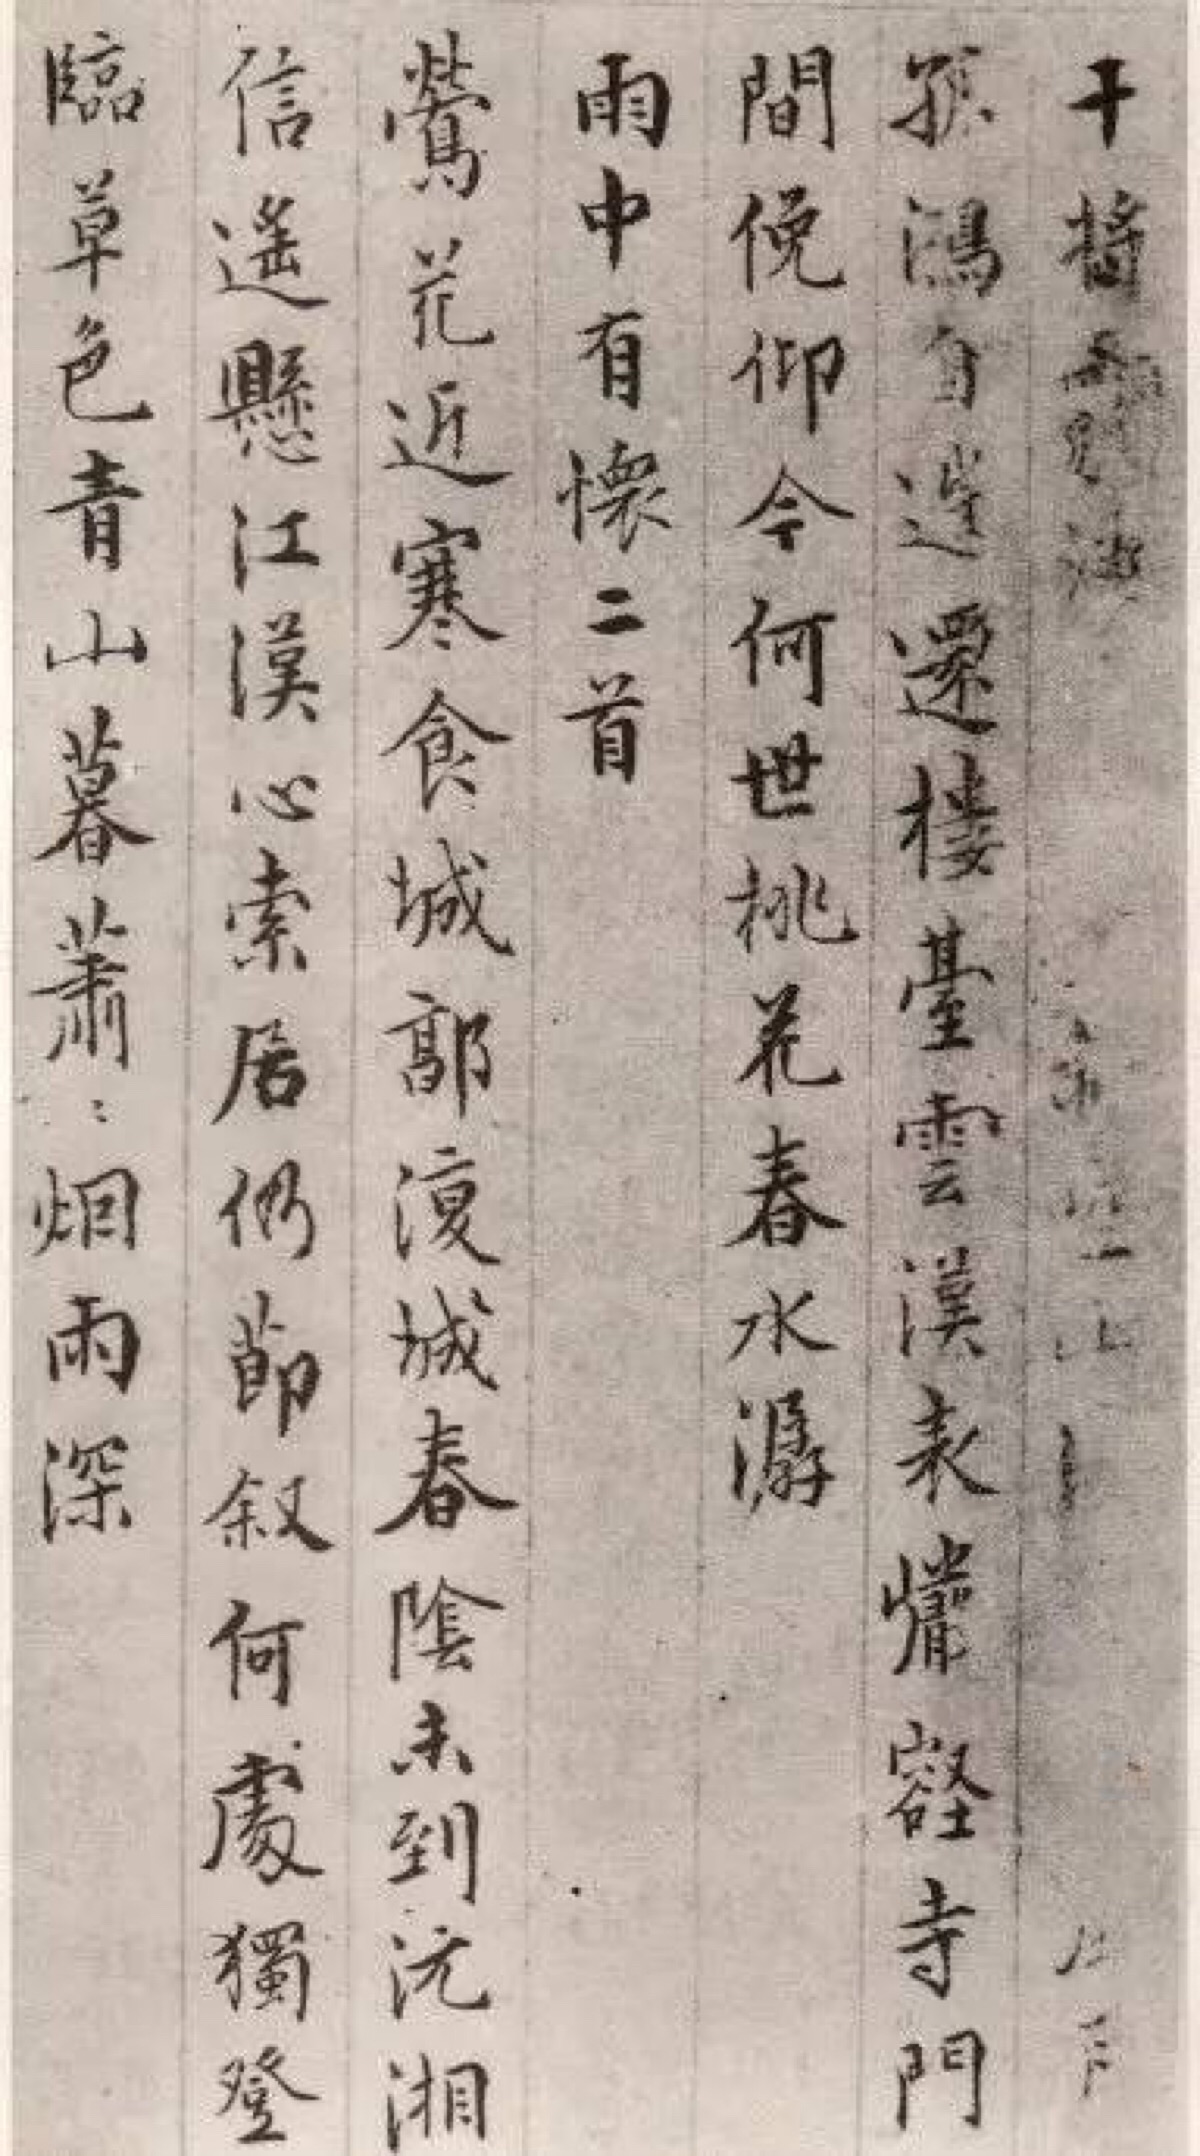 干將
孤鴻自從還樓臺雲漢表爌壑寺門
間俛仰今何世桃花春水潺
雨中有懷二首
鶯花近寒食城郭復城春陰未到沅湘
信遙懸江漢心索居仍節叙何處獨登
臨草色青山暮蕭〻烟雨深